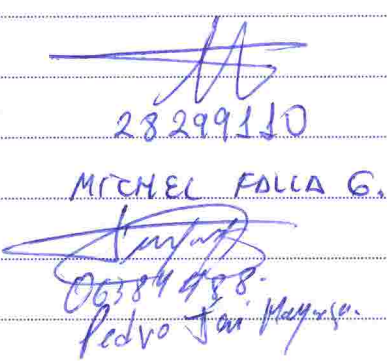 28299110
MITCHEL FALLA G.
06384488.
Pedro José Mayorga.